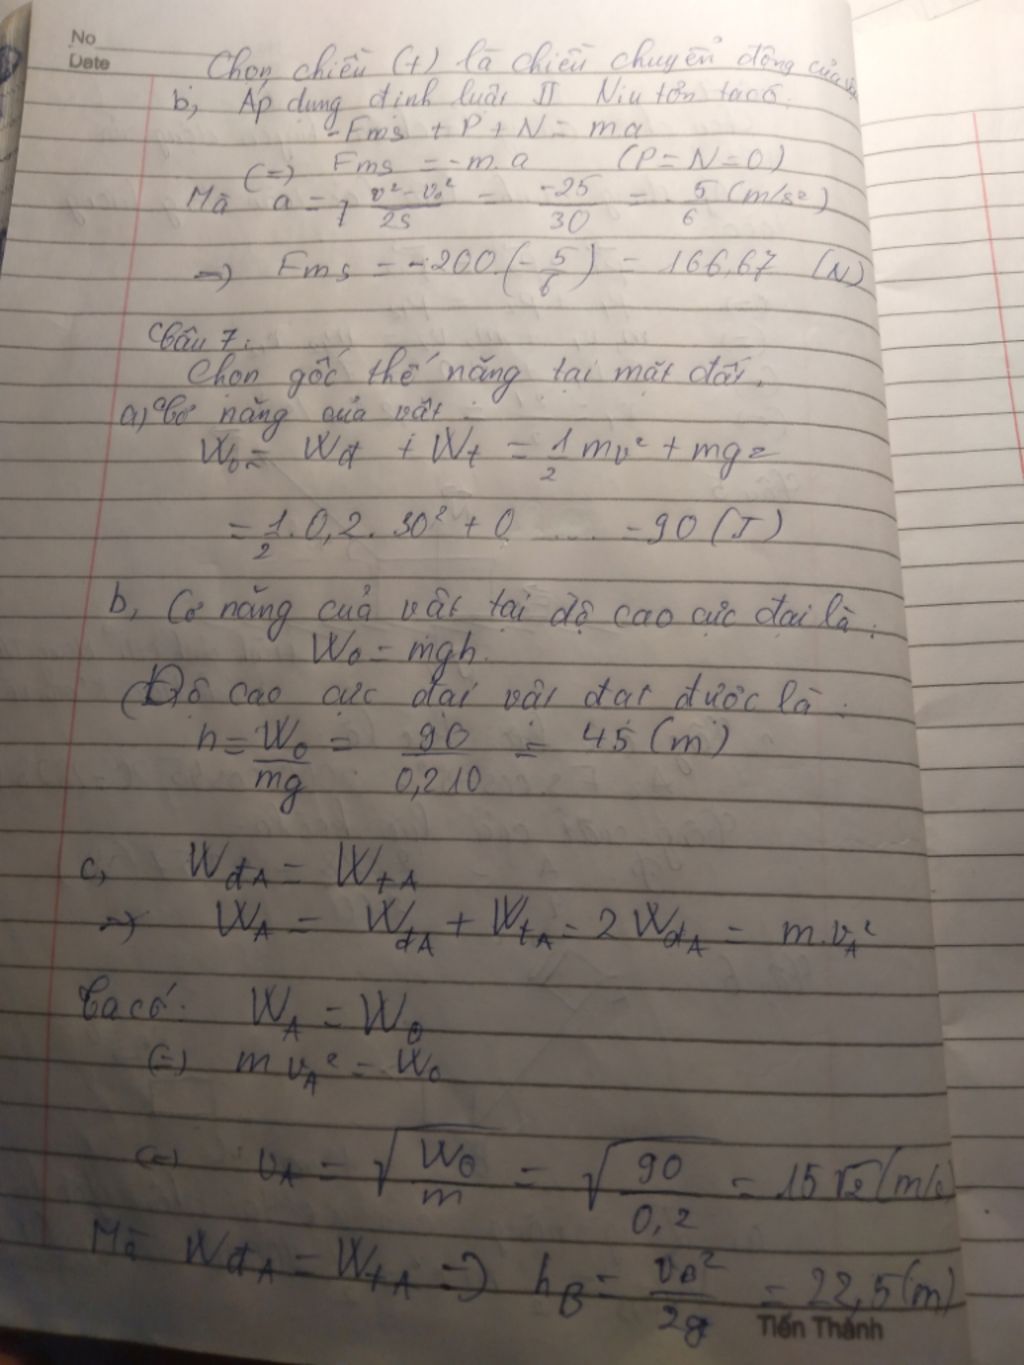 No
Date
Chọn chiều (+) là chiều chuyển động của
b, Áp dụng định luật II Niu tơn ta có.
-Fms + P + N = ma
(=) Fms = -m.a (P=N=0)
Mà a = v²-v₀²/2s = -25/30 = -5/6 (m/s²)
=) Fms = -200.(-5/6) = 166,67 (N)
Câu 7:
Chọn gốc thế năng tại mặt đất.
a) Cơ năng của vật:
W₀ = Wđ + Wt = 1/2 mv² + mgz
= 1/2. 0,2. 30² + 0 .... = 90 (J)
b, Cơ năng của vật tại độ cao cực đại là:
W₀ = mgh.
Độ cao cực đại vật đạt được là:
h = W₀/mg = 90/0,2.10 = 45 (m)
c, WđA = WtA
=) WA = WđA + WtA = 2WđA = m.vA²
Ta có: WA = W₀
(=) m vA² = W₀
(=) vA = √W₀/m = √90/0,2 = 15√2 (m/s)
Mà WđA = WtA =) hB = vB²/2g = 22,5 (m)
Tiến Thành